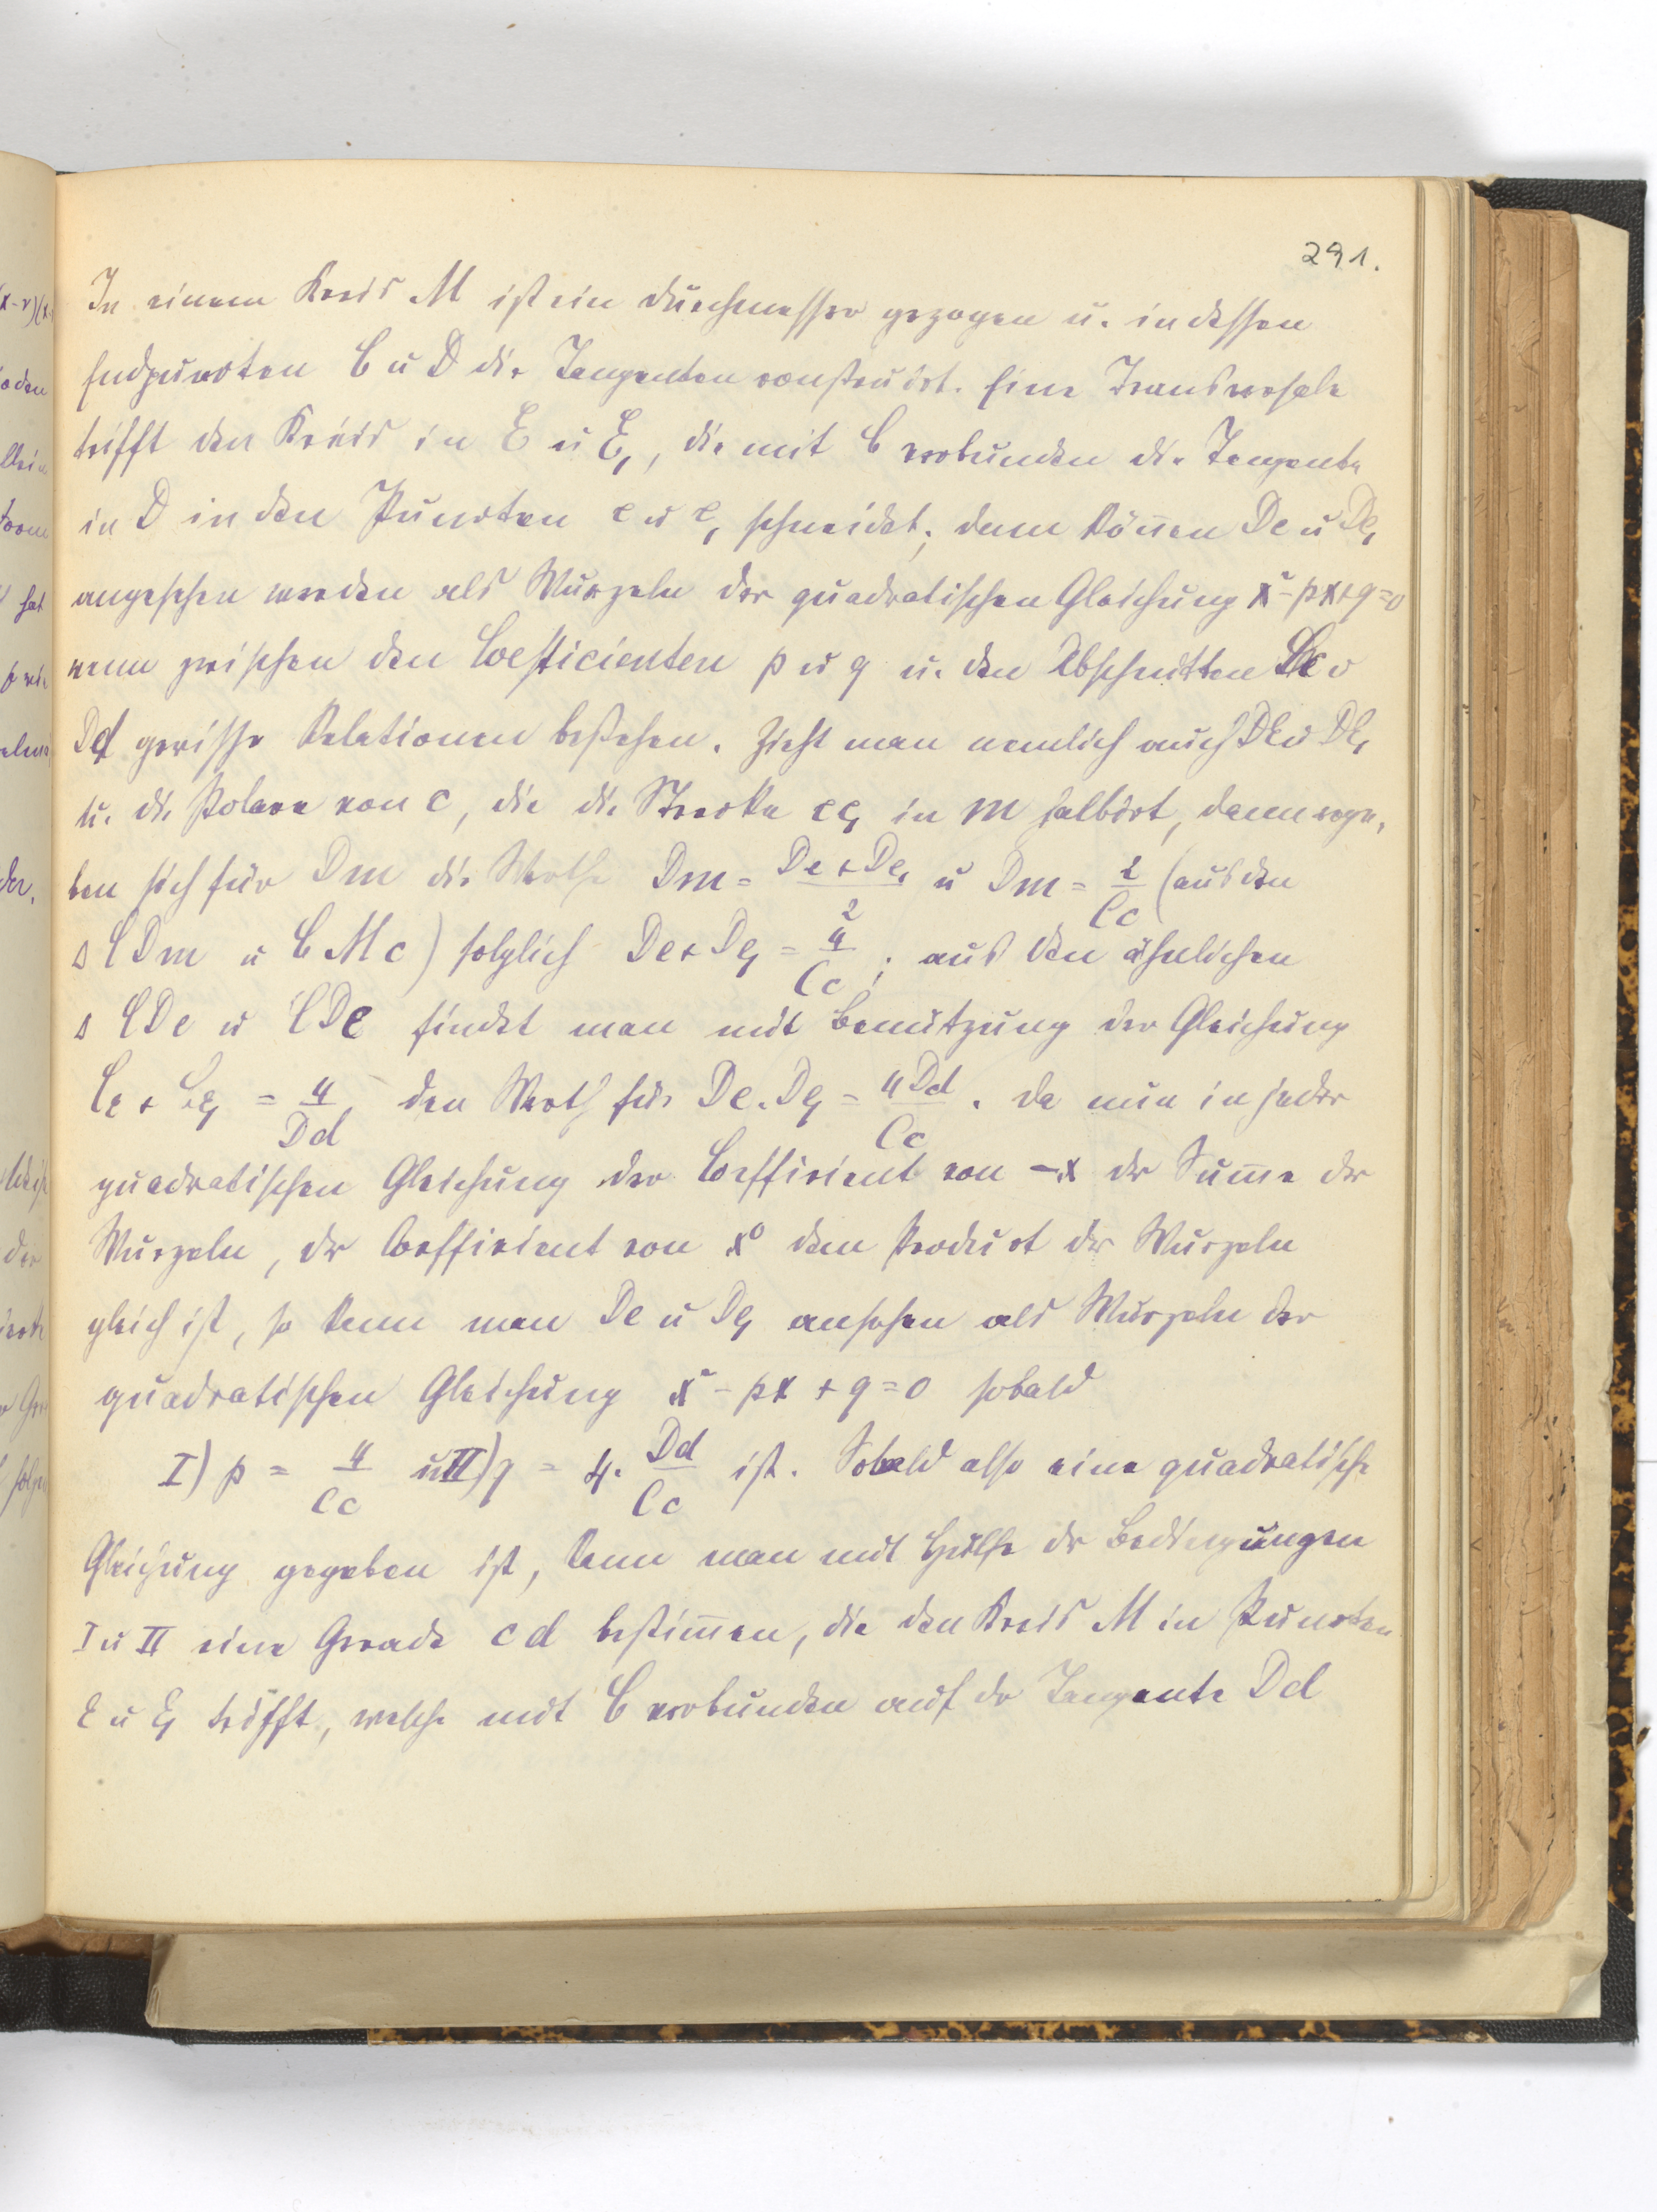 291.
In einem Kreis M ist ein Durchmesser gezogen u. in dessen
Endpuncten C u D die Tangenten construirt. Eine Transversale
trifft den Kreis in E u E₁, die mit C verbunden die Tangente
in D in den Puncten e u e₁ schneidet; dann können De u De₁
angesehen werden als Wurzeln der quadratischen Gleichung x²-px+q=0
wenn zwischen den Coefficienten p u q u. den Abschnitten Cc u
Dd gewisse Relationen bestehen. Zieht man nemlich auch DE u DE₁
u. die Polare von c, die die Strecke ee₁ in m halbirt, dann erge-
ben sich für Dm die Werthe Dm = (De+De₁)/2 u Dm = 2/Cc (aus den
Δ CDm u CMc) folglich De+De₁ = 4/Cc; aus den ähnlichen
Δ CDe u CDε findet man mit Benützung der Gleichung
Cε + Cε₁ = 4/Dd den Werth für De.De₁ = 4Dd/Cc. Da nun in jeder
quadratischen Gleichung der Coefficient von -x der Sum̅e der
Wurzeln, der Coefficient von x⁰ dem Product der Wurzeln
gleich ist, so kann man De u De₁ ansehen als Wurzeln der
quadratischen Gleichung x²-px+q=0 sobald
I) p = 4/Cc u II) q = 4. Dd/Cc ist. Sobald also eine quadratische
Gleichung gegeben ist, kann man mit Hülfe der Bedingungen
I u II eine Gerade cd bestim̅en, die den Kreis M in Puncten
E u E₁ trifft, welche mit C verbunden auf der Tangente Dd